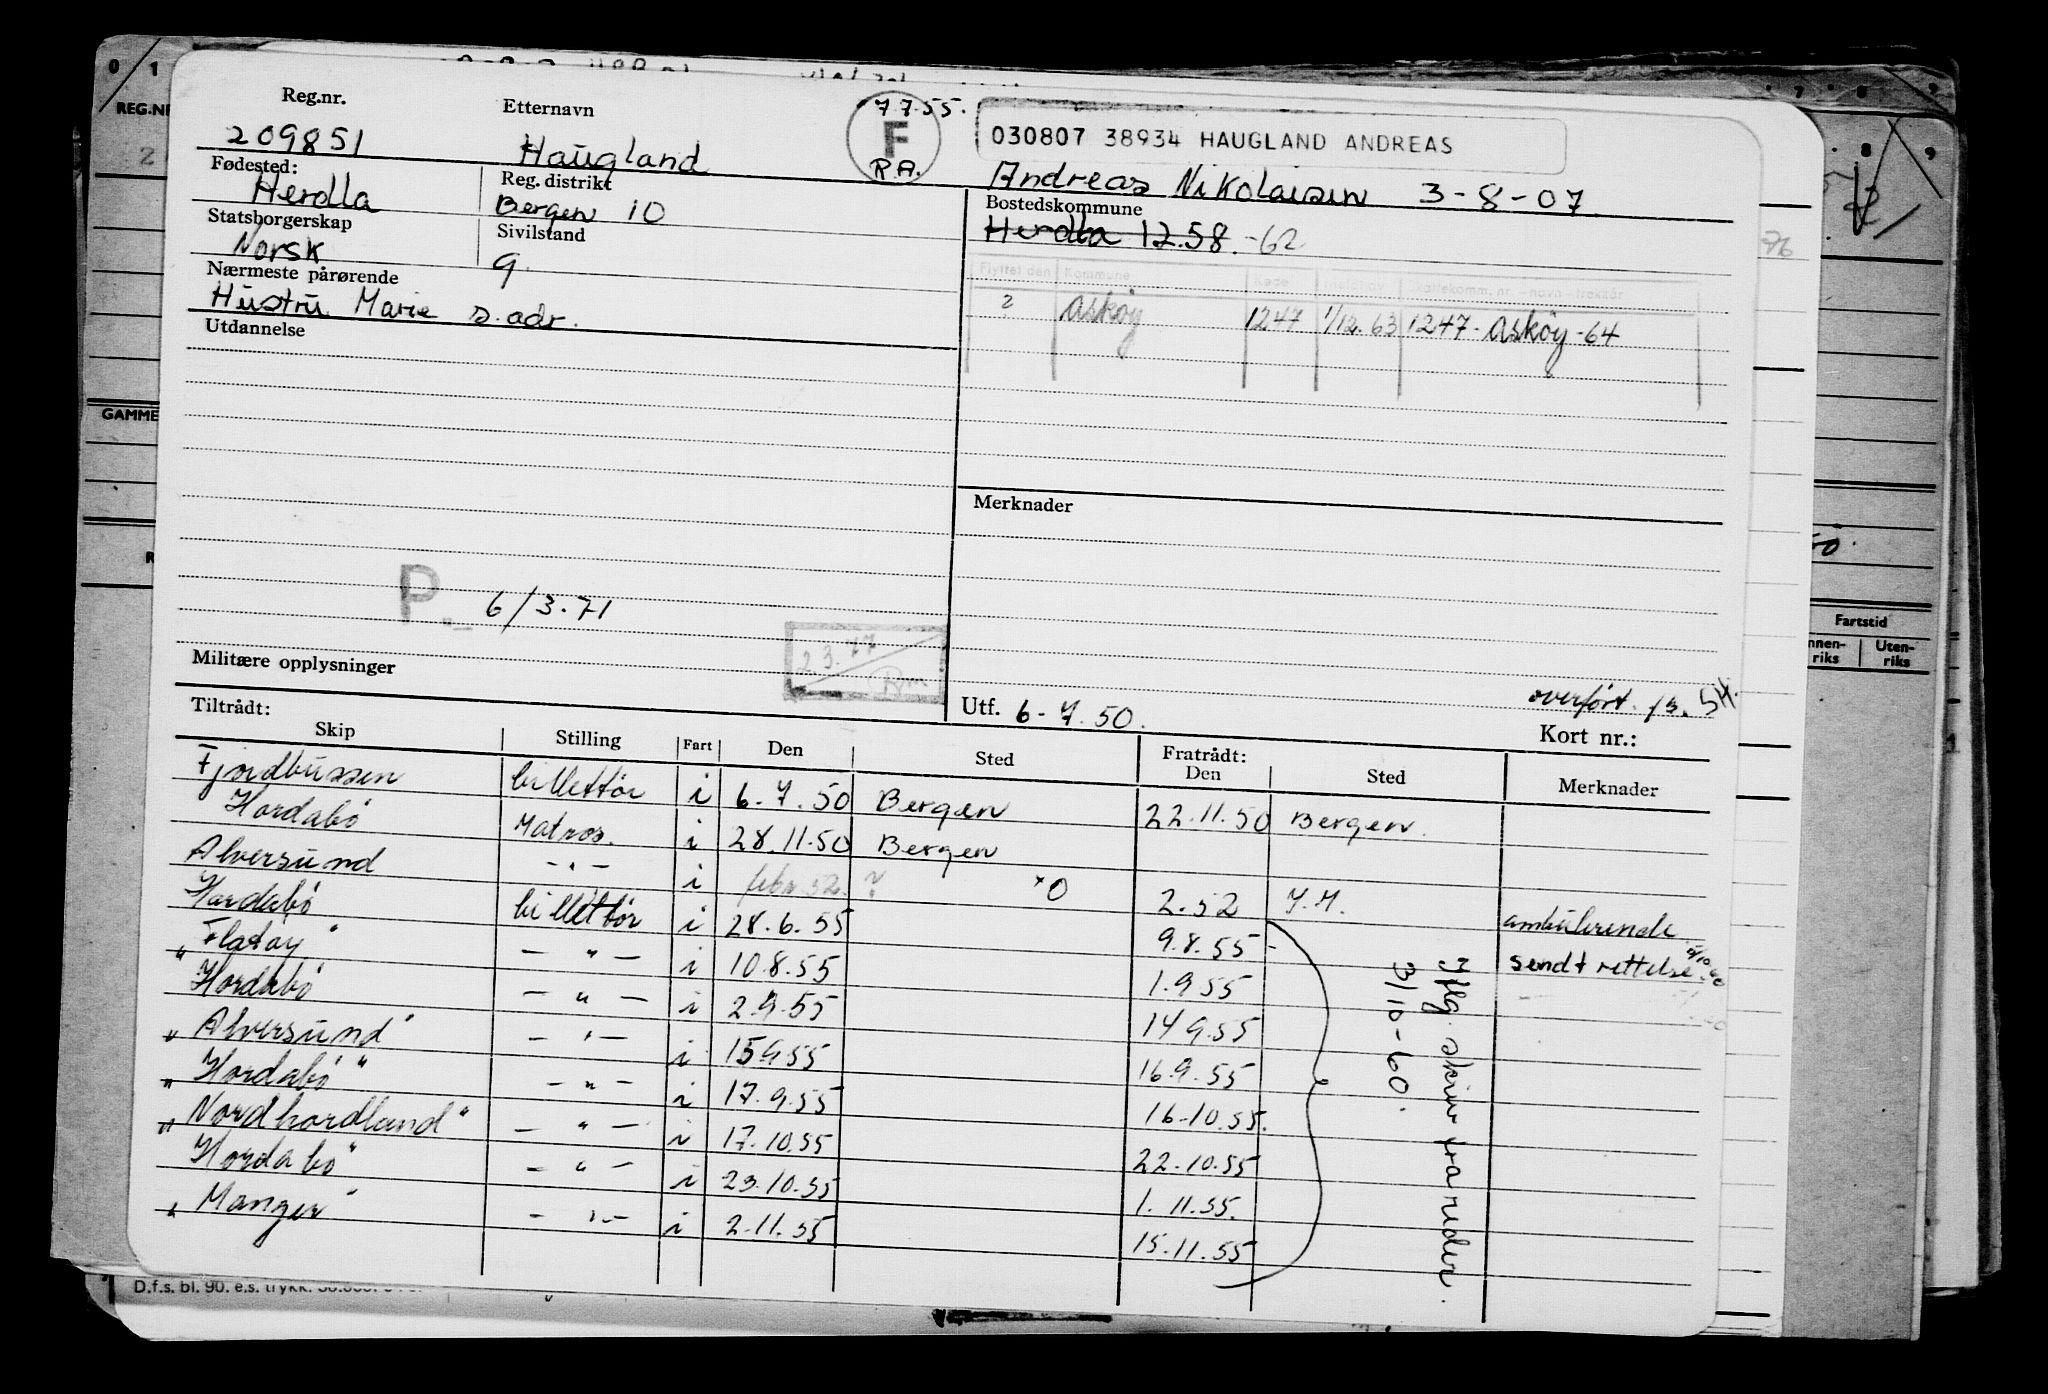 0 1
REG.NR
GAMME
Reg.nr.
209851
Etternavn
Haugland
7 7.55.
F
R.A.
030807 38934 HAUGLAND ANDREAS
Andreas Nikolaisen 3-8-07.
Fødested:
Herdla
Reg. distrikt
Bergen 10
Bostedskommune
Herdla 12.58.-62
Statsborgerskap
Norsk
Sivilstand
g.
Nærmeste pårørende
Hustru Marie s. adr.
Flyttet den Kommune
? Askøy 1247 1/12.63 1247- Askøy -64
Utdannelse
Merknader
P. 6/3.71
2.3.77
Militære opplysninger
Utf. 6-7.50.
overført. fs. 54.
Kort nr.:
Tiltrådt:
Skip Stilling Fart Den Sted Fratrådt: Den Sted Merknader
Fjordbussen billettør i 6-7.50 Bergen 22.11.50 Bergen.
Hordabø Matros. i 28.11.50 Bergen
Alversund -"- i febr. 52. ? *0 2.52 Y.M.
Hordabø billettør i 28.6.55 9.8.55- ambulerende
"Fladøy" -"- i 10.8.55 1.9.55 sendt rettelse
Hordabø -"- i 2.9.55 14.9.55
"Alversund" -"- i 15.9.55 16.9.55
"Hordabø" -"- i 17.9.55 16-10.55.
"Nordhordland" -"- i 17.10.55 22.10.55
Hordabø" -"- i 23.10.55 1.11.55.
"Manger" -"- i 2.11.55 15.11.55
Iflg. skriv fra reder.
3/10-60.
Fartstid
Innenriks Utenriks
8 9
76
D.f.s. bl. 90. e.s. trykk.